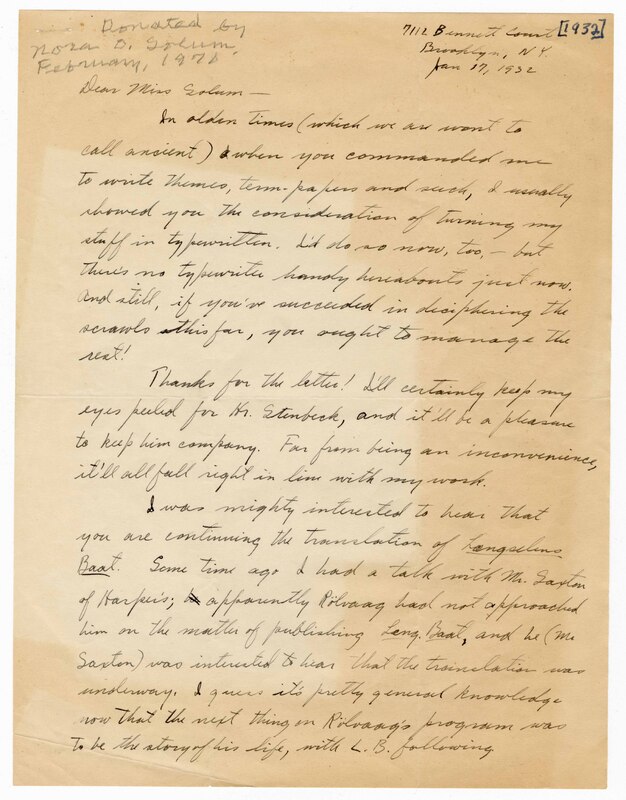 Donated by
Nora O. Solum.
February, 1971
[1932]
7112 Bennett Court
Brooklyn, N.Y.
Jan 17, 1932
Dear Miss Solum —
In olden times (which we are wont to
call ancient) when you commanded me
to write themes, term-papers and such, I usually
showed you the consideration of turning my
stuff in typewritten. I'd do so now, too, — but
there's no typewriter handy hereabouts just now.
And still, if you've succeeded in deciphering the
scrawls this far, you ought to manage the
rest!
Thanks for the letter! I'll certainly keep my
eyes peeled for Mr. Stenbeck, and it'll be a pleasure
to keep him company. Far from being an inconvenience,
it'll all fall right in line with my work.
I was mighty interested to hear that
you are continuing the translation of Længselens
Baat. Some time ago I had a talk with Mr. Saxton
of Harper's; apparently Rölvaag had not approached
him on the matter of publishing Læng. Baat, and he (Mr.
Saxton) was interested to hear that the trainslation was
underway. I guess it's pretty general knowledge
now that the next thing on Rölvaag's program was
to be the story of his life, with L. B. following